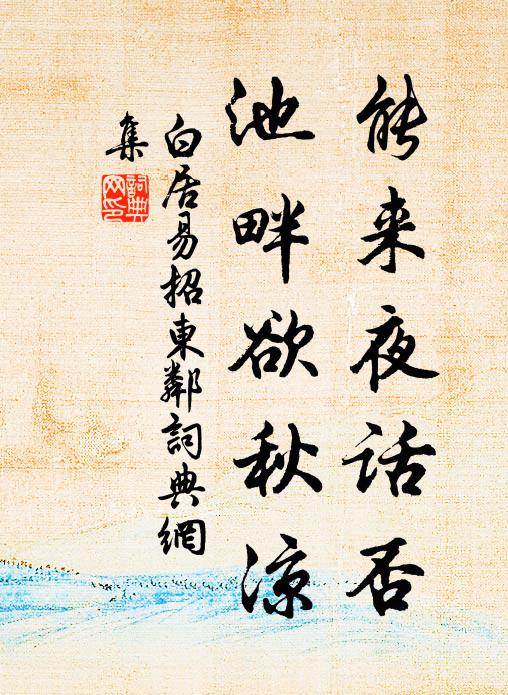 能来夜话否
池畔欲秋凉
白居易招東鄰詞典網
集
詞典
网印